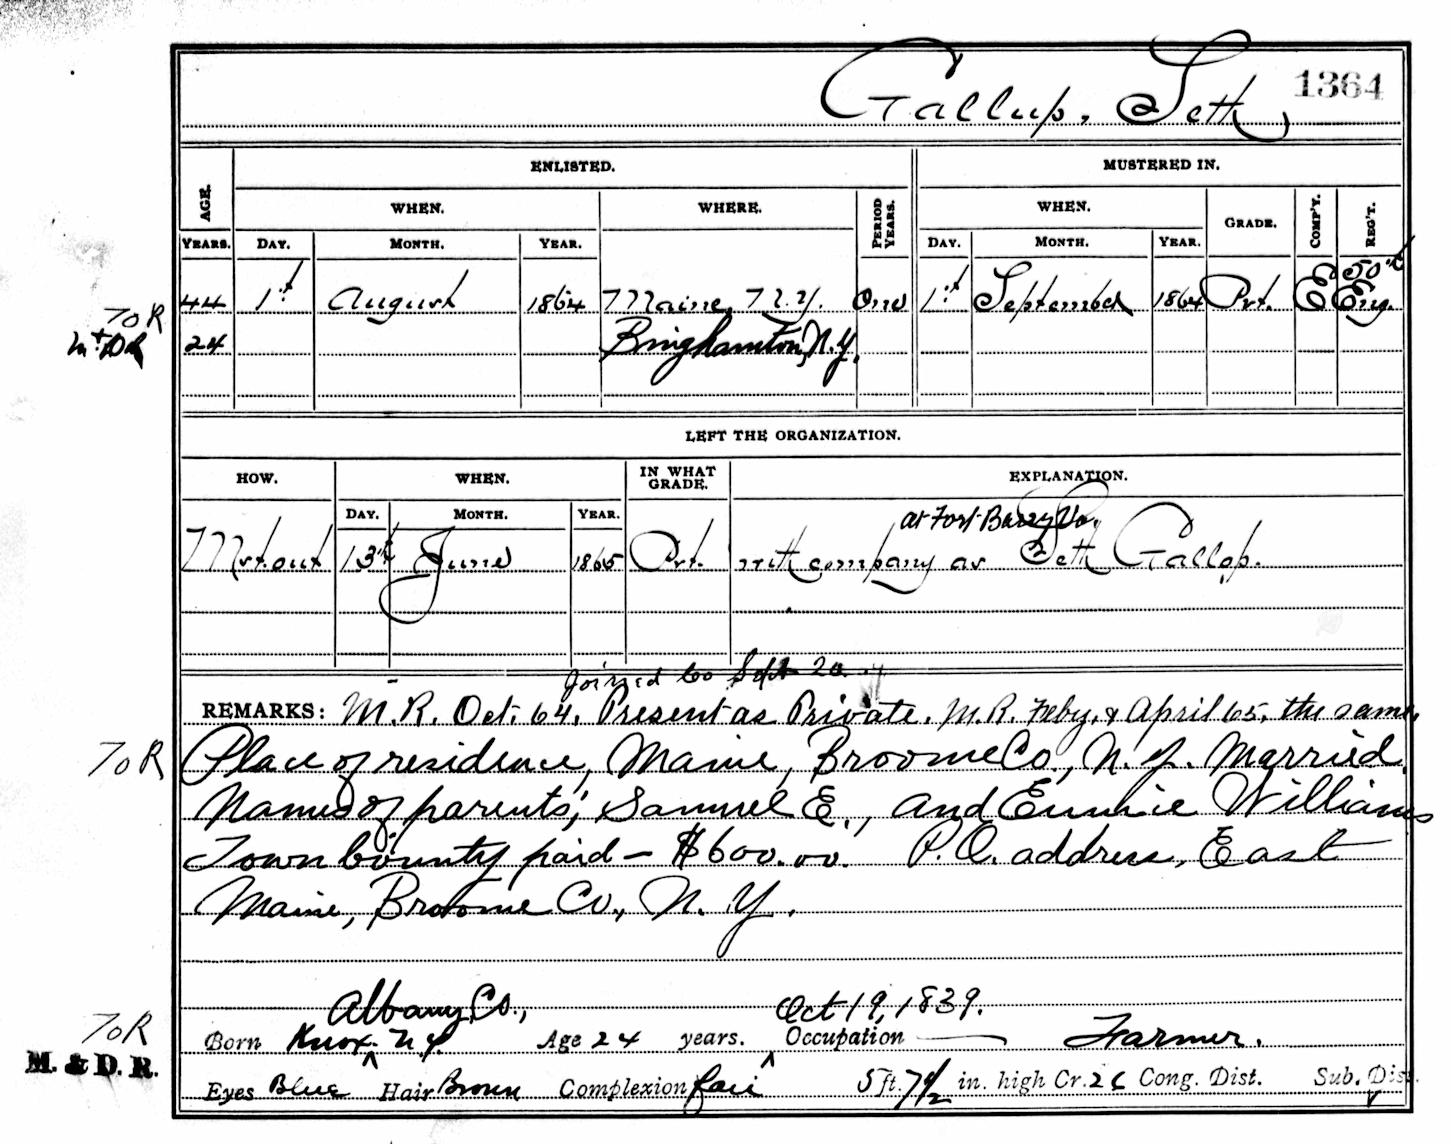 Gallup, Seth 1364
ENLISTED. MUSTERED IN.
AGE. WHEN. WHERE. PERIOD YEARS. WHEN. GRADE. COMP'Y. REG'T.
YEARS. DAY. MONTH. YEAR. DAY. MONTH. YEAR.
44 1st August 1864 Maine, N.Y. One 1st September 1864 Prt. E 50th Eng.
T O R
24 Binghamton, N.Y.
LEFT THE ORGANIZATION.
HOW. WHEN. IN WHAT GRADE. EXPLANATION.
DAY. MONTH. YEAR.
at Fort Barry Va.
Mst. out 13th June 1865 Prt. with company as Seth Gallop.
Joined Co Sept 20
REMARKS: M.R. Oct. 64, Present as Private. M.R. Feby. & April 65, the same.
T O R Place of residence, Maine, Broome Co., N.Y. Married.
Names of parents; Samuel E., and Eunice Williams
Town bounty paid – $600.00. P.O. address, East
Maine, Broome Co., N.Y.
Albany Co., Oct 19, 1839.
T O R Born Knox ^ N.Y. Age 24 years. Occupation Farmer.
M. & D. R. Eyes Blue Hair Brown Complexion fair ^ 5 ft. 7 1/2 in. high Cr. 26 Cong. Dist. Sub. Dist.